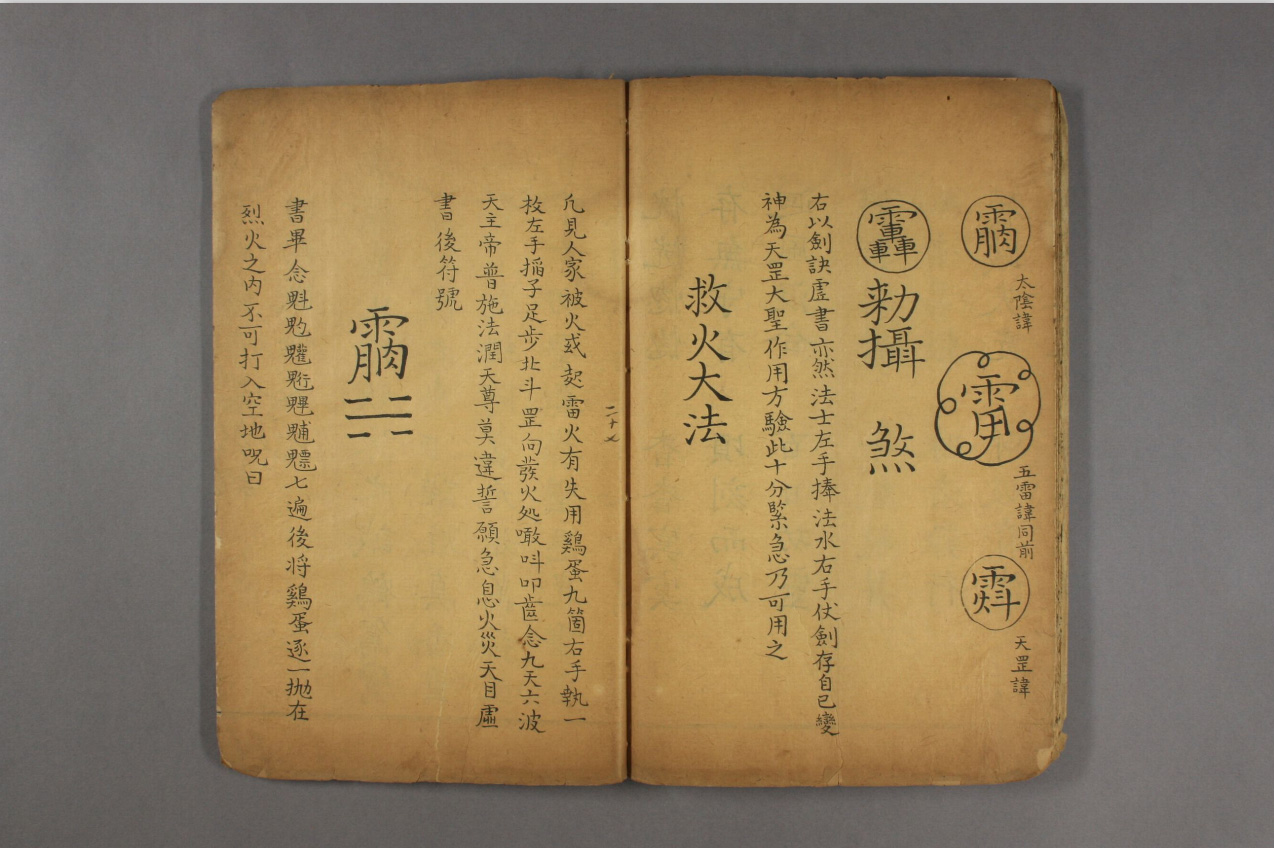 太陰諱
五雷諱同前
天罡諱
勅攝 煞
右以劍訣虛書亦然法士左手捧法水右手仗劍存自己變
神為天罡大聖作用方驗此十分緊急乃可用之
救火大法
二十七
凡見人家被火或起雷火有失用鷄蛋九箇右手執一
枚左手搯子足步北斗罡向發火处噉呌叩齒念九天六波
天主帝普施法潤天尊莫違誓願急息火災天目虛
書後符號
書畢念魁𩲃魓七遍後将鷄蛋逐一抛在
烈火之内不可打入空地呪曰